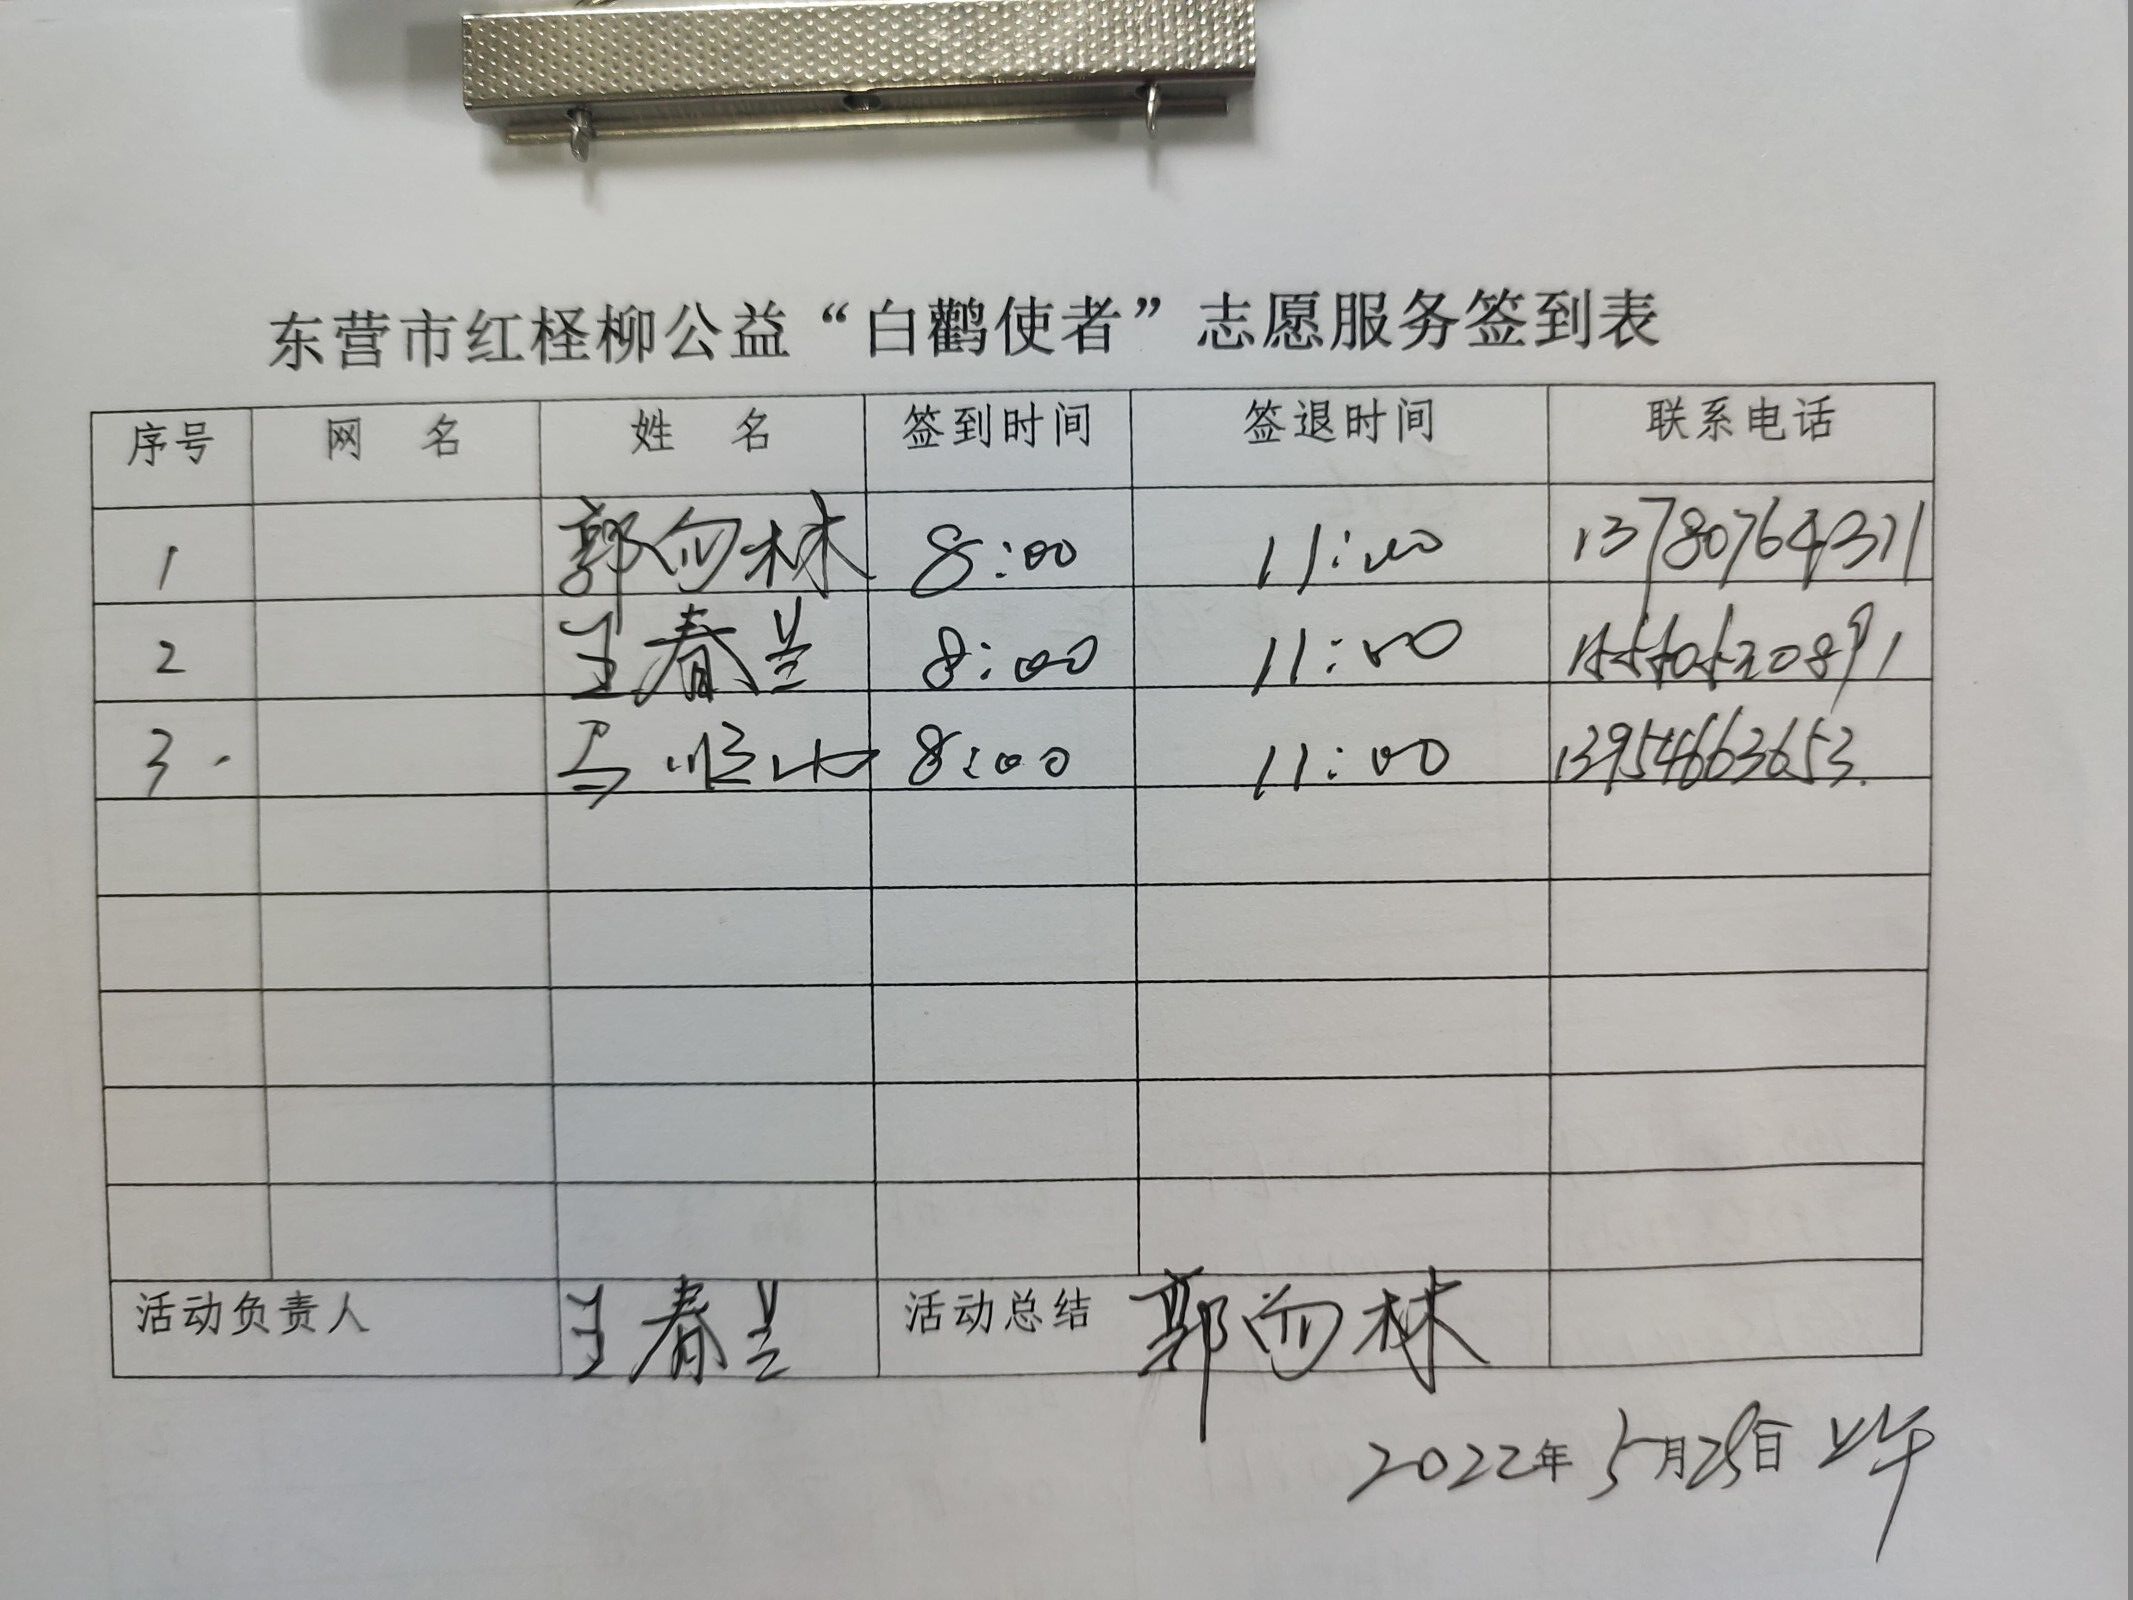 东营市红柽柳公益“白鹳使者”志愿服务签到表
序号 网 名 姓 名 签到时间 签退时间 联系电话
1 郭向林 8:00 11:00 13780764371
2 王春兰 8:00 11:00
3 8:00 11:00 13954663653
活动负责人 王春兰 活动总结 郭向林
2022年5月28日上午